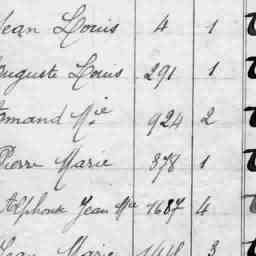 Jean Louis 4 1
Auguste Louis 291 1
Armand Mie 924 2
Pierre Marie 878 1
Alphonse Jean Mie 1687 4
Jean Marie 3